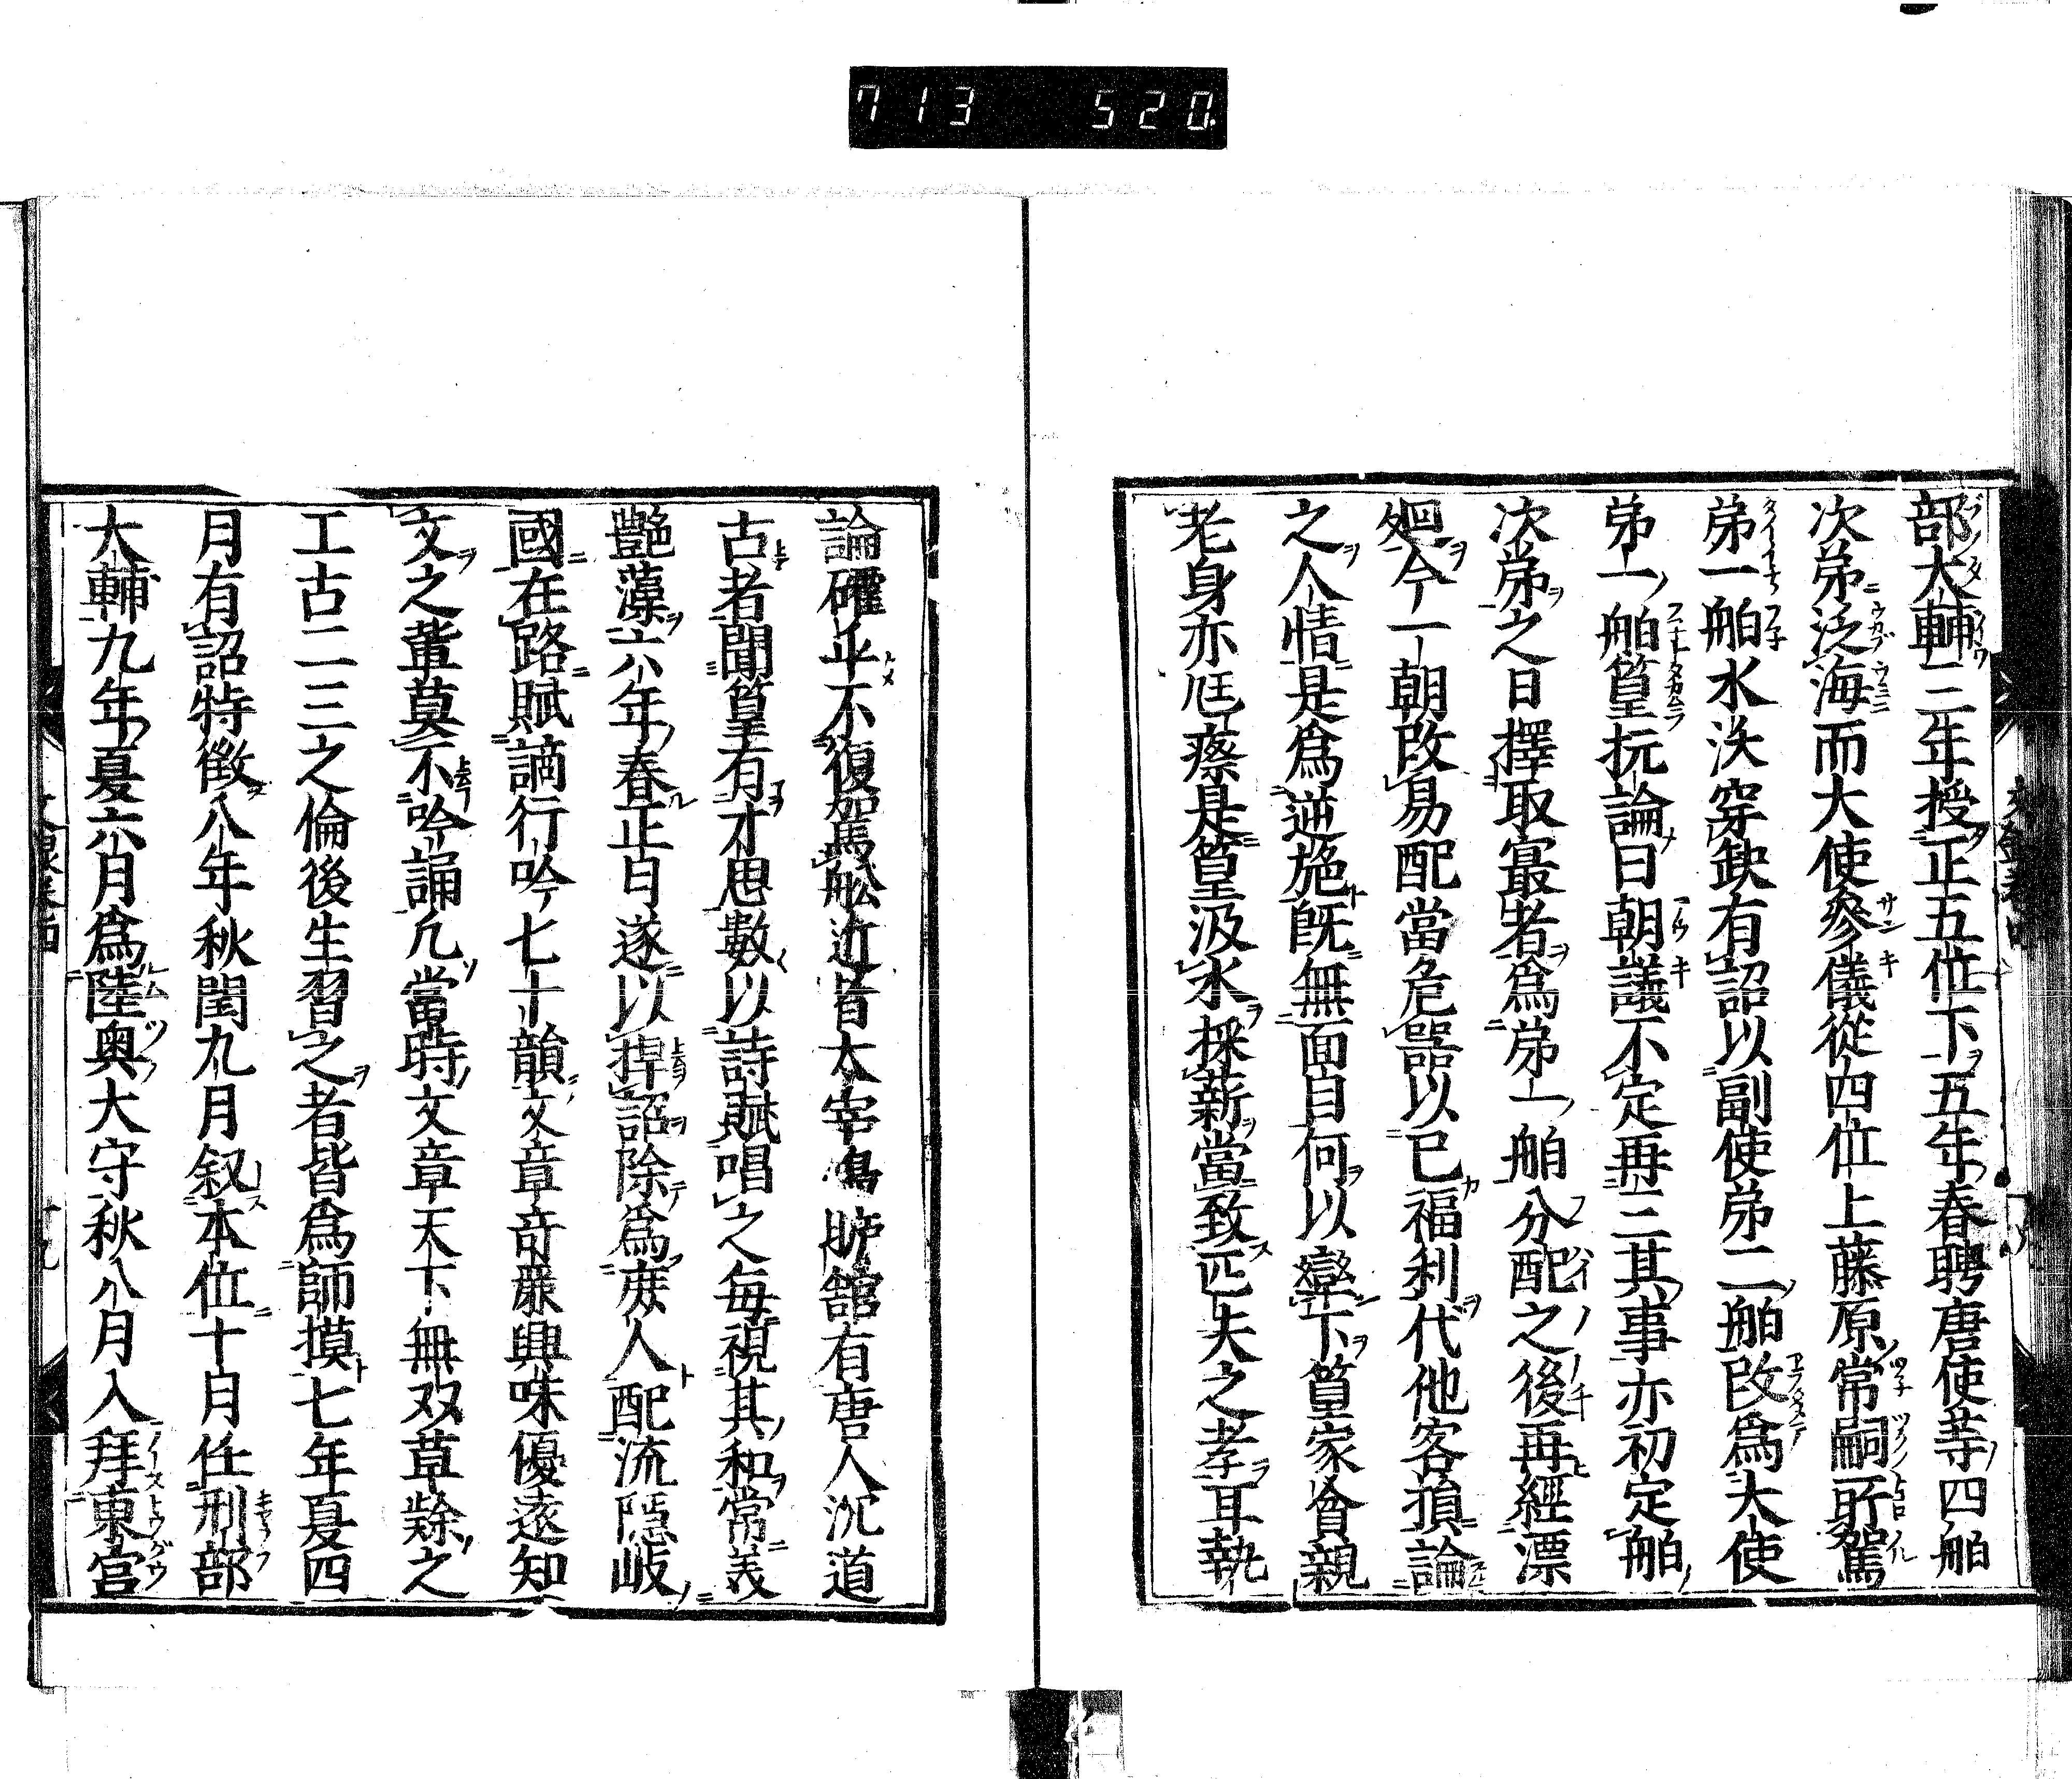 713 520
部大輔二年授正五位下五年春聘唐使等四舶
次第泛海而大使參儀從四位上藤原常嗣所駕
第一舶水泆穿缺有詔以副使第二舶改爲大使
第一舶篁抗論曰朝議不定再三其事亦初定舶
次第之日擇取最者爲第一舶分配之後再經漂
廻今一朝改易配當危器以已福利代他害損論
之人情是爲逆施既無面目何以率下篁家貧親
老身亦尫瘵是篁汲水採薪當致匹夫之孝耳執
論確乎不復駕舩近者太宰鴻臚館有唐人沉道
古者聞篁有才思數以詩賦唱之每視其和常美
艶藻六年春正月遂以捍詔除爲庶人配流隱岐
國在路賦謫行吟七十韻文章奇麗興味優遠知
文之輩莫不吟誦凢當時文章天下無双草隸之
工古二三之倫後生習之者皆爲師摸七年夏四
月有詔特徵八年秋閏九月叙本位十月任刑部
大輔九年夏六月爲陸奥大守秋八月入拜東宮